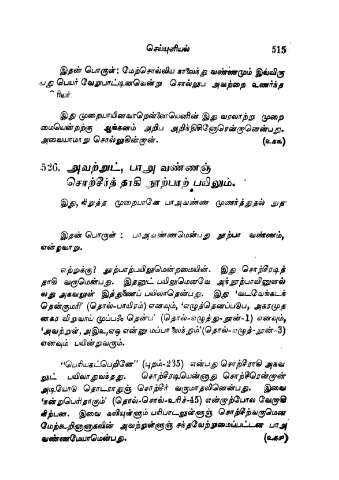 செய்யுளியல் 515
இதன் பொருள்: மேற்சொல்லிய காலைந்து வண்ணமும் இவ்விரு
பது பெயர் வேறுபாட்டினவென்று சொல்லுப அவற்றை உணர்ந்த
இது முறையாயினவாறென்னையெனின் இது வரலாற்று முறை
மையென்றற்கு ஆங்கனம் அறிப அறிந்திசினோரென்றானென்பது.
அவையாமாறு சொல்லுகின்றான். (உகக)
526. அவற்றுட், பாஅ வண்ணஞ்
சொற்சீர்த் தாகி நூற்பாற் பயிலும்.
இது, நிறுத்த முறையானே பாஅவண்ண முணர்த்துதல் நுத
இதன் பொருள் : பாஅவண்ணமென்பது நூற்பா வண்ணம்,
என்றவாறு.
எற்றுக்கு? நூற்பாற்பயிலுமென்றமையின். இது சொற்சீரடித்
தாகி வருமென்பது. இதனுட் பயிலுமெனவே அந்நூற்பாவினுளல்
லது அகவலுள் இத்துணைப் பயிலாதென்பது. இது 'வடவேங்கடந்
தென்குமரி' (தொல்-பாயிரம்) எனவும், 'எழுத்தெனப்படுப, அகரமுத
னகர விறுவாய் முப்பஃ தென்ப' (தொல்-எழுத்து-நூன்-1) எனவும்,
'அவற்றுள், அஇஉஎஒ என்னு மப்பாலைந்தும்' (தொல்-எழுத்-நூன்-3)
எனவும் பயின்றவரும்.
"பெரியகட்பெறினே" (புறம்-235) என்பது சொற்சீராகி அகவ
லுட் பயிலாதுவந்தது. சொற்சீரடியென்னாது சொற்சீரென்றான்
அடியோடு தொடராதுஞ் சொற்சீர் வருமாதலினென்பது. இவை
'சுன்றுபெரிதாகும்' (தொல்-சொல்-உரிச்-45) என்றாற்போல வேறாகி
நிற்பன. இவை கலியுள்ளும் பரிபாடலுள்ளுஞ் சொற்சீர்வருமென
மேற்கூறினானாதலின் அவற்றுள்ளுஞ் சந்தவேற்றுமைப்பட்டன பாஅ
வண்ணமேயாமென்பது. (உகச)